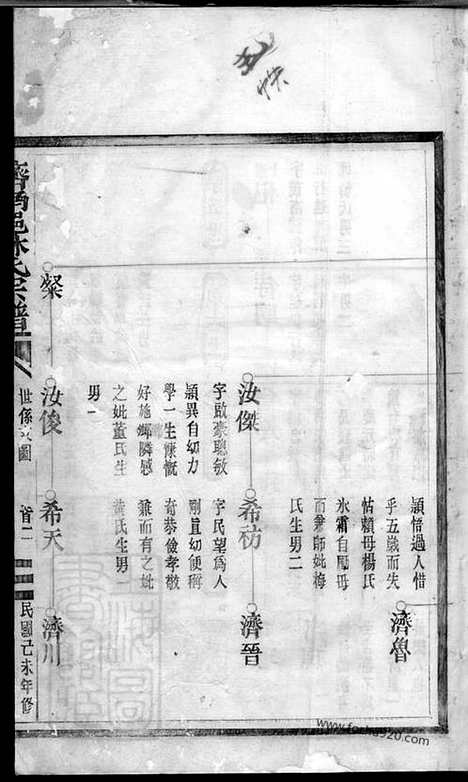 濟魯
穎悟過人惜
乎五歲而失
怙賴母楊氏
氷霜自勵母
而兼師妣梅
氏生男二
汝傑
希祊
濟晉
字啟豪聰敏
穎異自幼力
學一生慷慨
好施鄉隣感
之妣董氏生
男一
字民望為人
剛直幼便稱
奇恭儉孝敬
兼而有之妣
黃氏生男
粲
汝俊
希天
濟川
林氏宗譜
世係次圖
首二
民國己未年修
www.forku920.com